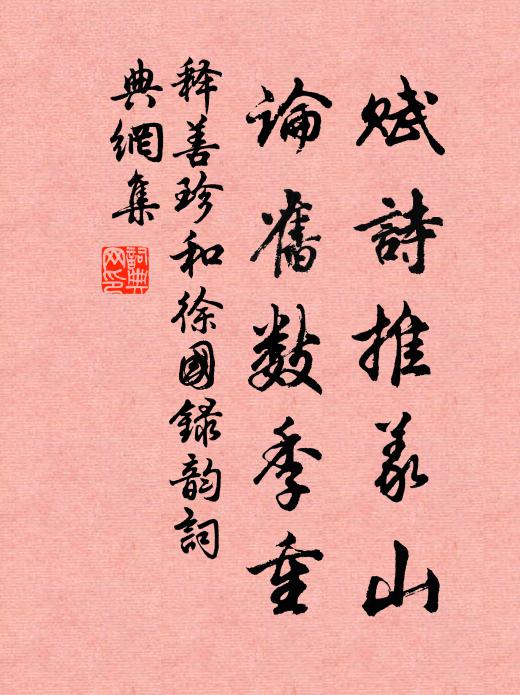 賦詩推義山
論舊數季重
释善珍和徐國録韵詞
典網集
詞典
网印